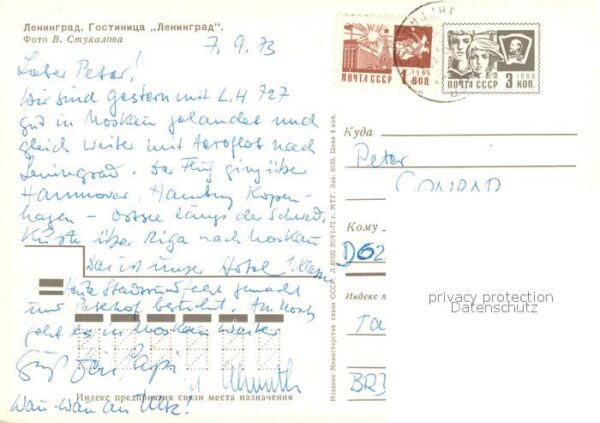 Ленинград. Гостиница „Ленинград".
Фото В. Стукалова
7.9.73
Lieber Peter!
Wir sind gestern mit LH 727
gut in Moskau gelandet und
gleich weiter mit Aeroflot nach
Leningrad. Der Flug ging über
Hannover, Hamburg Kopen-
hagen - Ostsee längs der Schwed.
Küste über Riga nach Moskau
Das ist unser Hotel 1. Klasse
heute Stadtrundfahrt gemacht
und besichtigt. Am
geht es in Moskau weiter
Gruß Dein Papi
u. Almuth
Wau-Wau an
ПОЧТА СССР 1 КОП. 1966
ПОЧТА СССР 3 КОП. 1966
Куда
Peter
CONRAD
Кому
D62
Индекс п
Ta
BR3
Издание Министерства связи СССР. 20/VI-72 г. МТГ. Зак. 6130. Цена 4 коп.
Индекс предприятия связи места назначения
privacy protection
Datenschutz